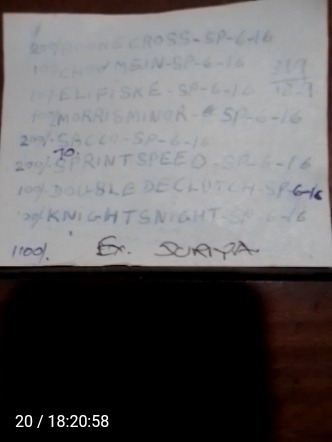 CROSS-SP-6-16
100% CHOW MEIN-SP-6-16
100% ELIFISKE-SP-6-16
100% MORRISMINOR-SP-6-16
200% SACCO-SP-6-16
200% SPRINTSPEED-SP-6-16
100% DOUBLEDECLUTCH-SP-6-16
100% KNIGHTSNIGHT-SP-6-16
1100%. Ex. SURIYA
20 / 18:20:58